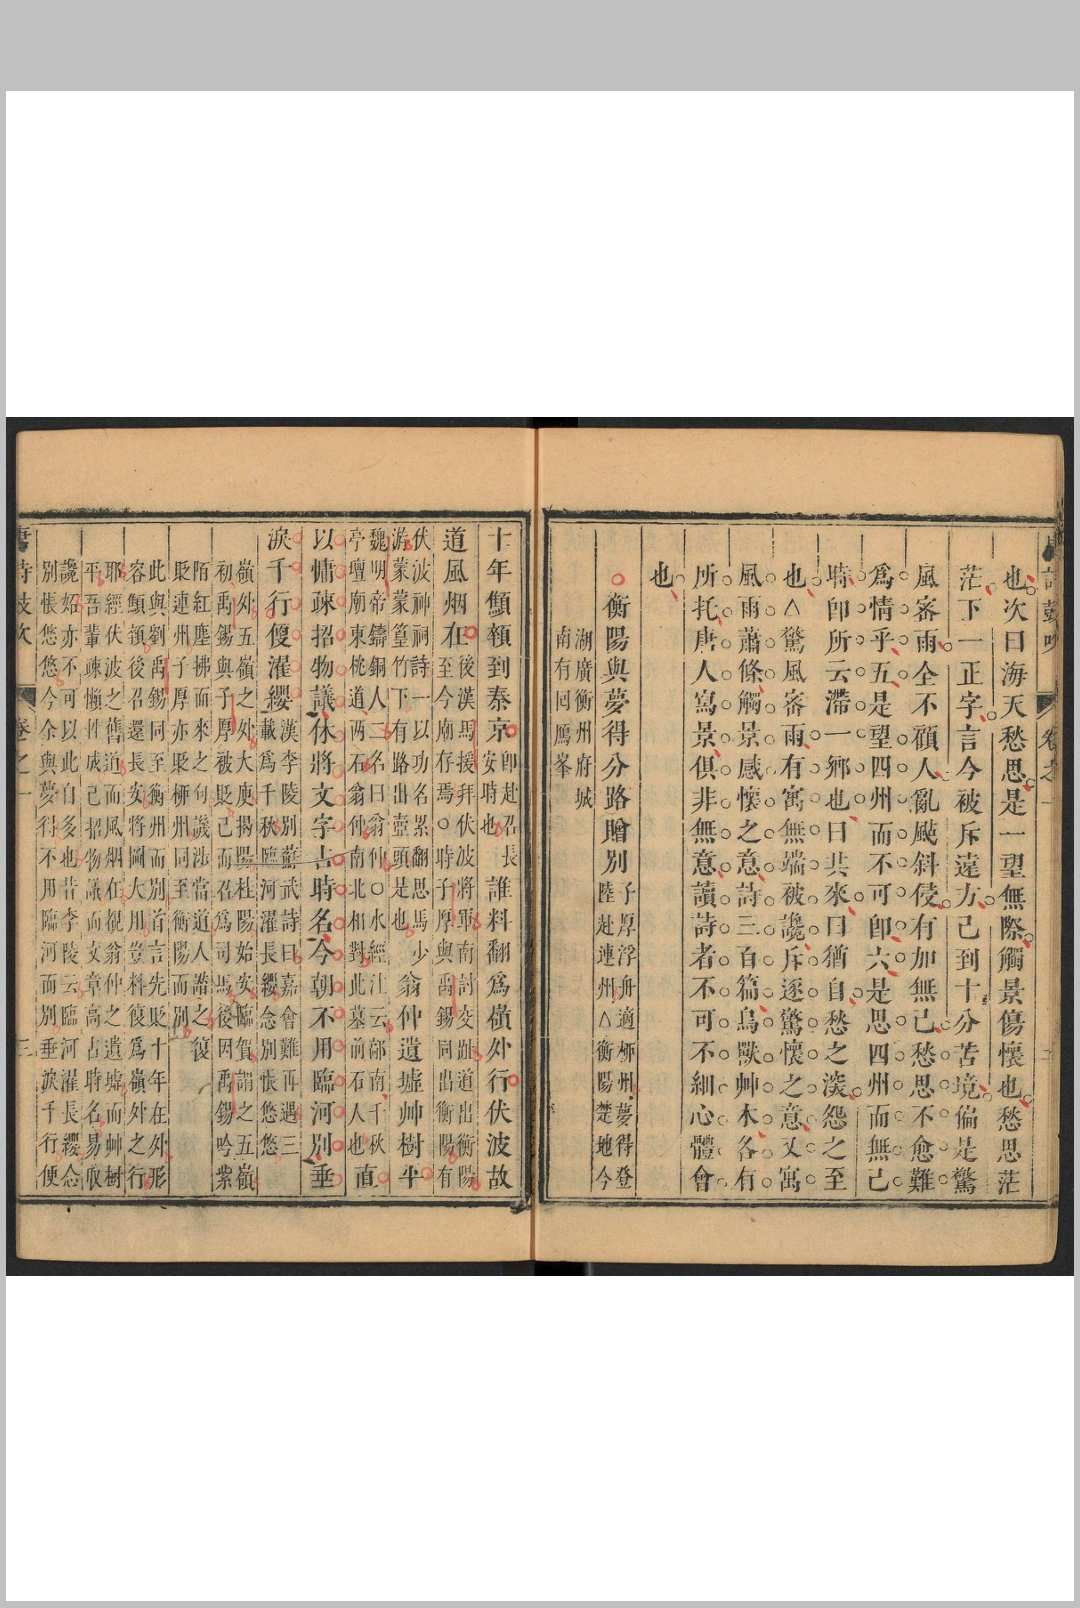 也次曰海天愁思是一望無際觸景傷懷也愁思茫
茫下一正字言今被斥遠方己到十分苦境偏是驚
風密雨全不顧人亂颭斜侵有加無已愁思不愈難
爲情乎五是望四州而不可卽六是思四州而無已
時卽所云滯一鄉也曰共來曰猶自愁之深怨之至
也△驚風密雨有寓無端被讒斥逐驚懷之意又寓
風雨蕭條觸景感懷之意詩三百篇鳥獸艸木各有
所托唐人寫景俱非無意讀詩者不可不細心體會
也
○衡陽與夢得分路贈別
子厚浮舟適柳州夢得登
陸赴連州△衡陽楚地今
湖廣衡州府城
南有回鴈峯
十年顦顇到秦京
卽赴召長
安時也
誰料翻爲嶺外行伏波故
道風烟在
後漢馬援拜伏波將軍南討交趾道出衡陽
至今廟存焉○時子厚與禹錫同出衡陽有
伏波神祠詩一以功名累翻思馬少
游蒙蒙篁竹下有路出壺頭是也
翁仲遺墟艸樹平
魏明帝鑄銅人二名曰翁仲○水經注云鄗南千秋
亭壇廟東桃道两石翁仲南北相對此墓前石人也
直
以慵疎招物議休將文字占時名今朝不用臨河別垂
淚千行便濯纓
漢李陵別蘇武詩曰嘉會難再遇三
載爲千秋臨河濯長纓念別悵悠悠
嶺外五嶺之外大庾揭陽杜陽始安臨賀謂之五嶺
初禹錫與子厚被貶已而召爲司馬後因禹錫吟紫
陌紅塵拂面來之句譏涉當道人譖之復
貶連州子厚亦貶柳州同至衡陽而別
此與劉禹錫同至衡州而別首言先貶十年在外形
容顦顇後召還長安將圖大用豈料復爲嶺外之行
耶經伏波之舊道而風烟在覩翁仲之遺墟而艸樹
平吾輩疎懶性成己招物議而文章高占時名易取
讒妬亦不可以此自多也昔李陵云臨河濯長纓念
別悵悠悠今余與夢得不用臨河而別垂淚千行便
卷之一
三